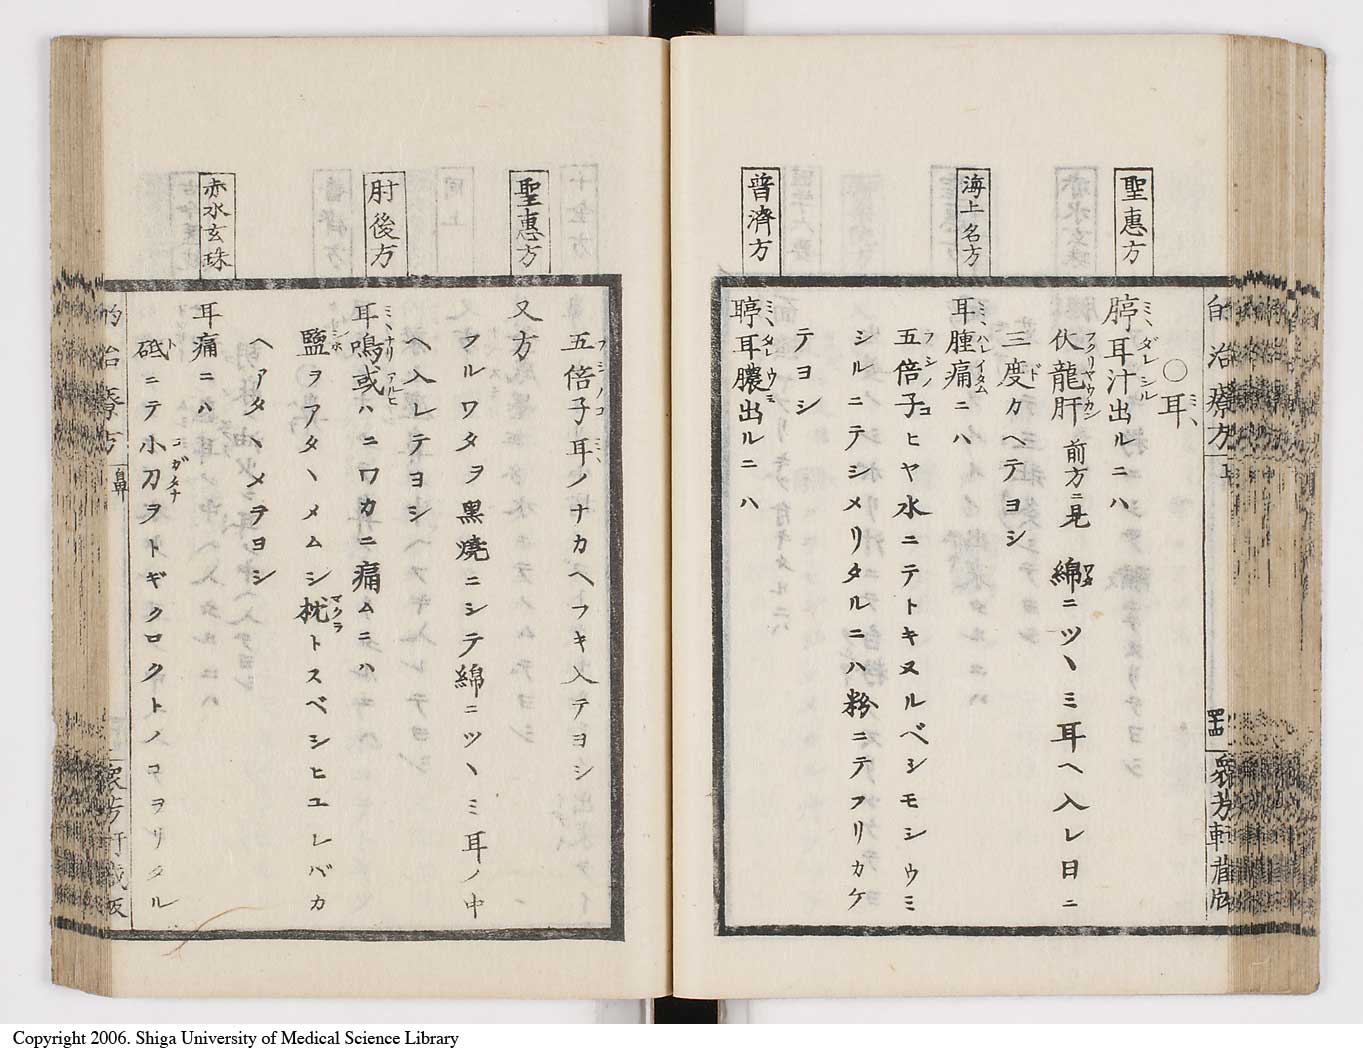 的治療方 上
衆芳軒蔵版
○耳
聖惠方
聤耳汁出ルニハ
伏龍肝 前方ニ見 綿ニツヽミ耳ヘ入レ日ニ
三度カヘテヨシ
海上名方
耳腫痛ニハ
五倍子ヒヤ水ニテトキヌルベシモシウミ
シルニテシメリタルニハ粉ニテフリカケ
テヨシ
普濟方
聤耳膿出ルニハ
五倍子耳ノナカヘフキ入テヨシ
聖惠方
又方
フルワタヲ黑燒ニシテ綿ニツヽミ耳ノ中
ヘ入レテヨシ
肘後方
耳鳴或ハニワカニ痛ムニハ
鹽ヲアタヽメムシ枕トスベシヒユレバカ
ヘアタヽメテヨシ
赤水玄珠
耳痛ニハ
砥ニテ小刀ヲトギクロクトノコヲリタル
的治療方 鼻
衆芳軒蔵版
Copyright 2006. Shiga University of Medical Science Library